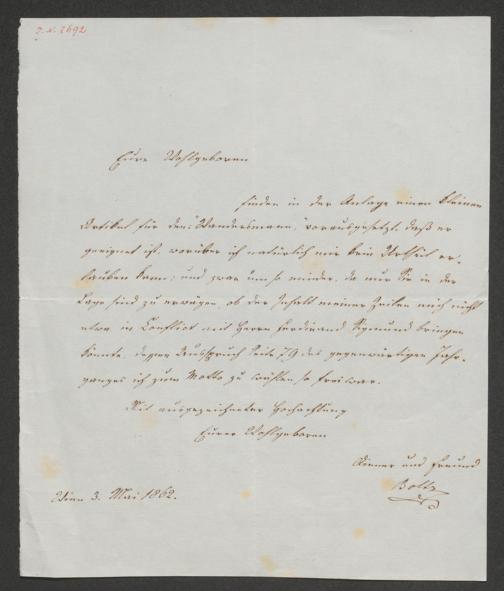 J. N. 2692
Eure Wohlgeboren
finden in der Anlage einen kleinen
Artikel für den "Wandersmann", vorausgesetzt, daß er
geeignet ist, worüber ich natürlich mir kein Urtheil er-
lauben kann; und zwar um so minder, da nur Sie in der
Lage sind zu erwägen, ob der Inhalt meiner Zeilen mich nicht
etwa in Conflict mit Herrn Ferdinand Sigmund bringen
könnte, dessen Ausspruch Seite 79 des gegenwärtigen Jahr-
ganges ich zum Motto zu wählen so frei war.
Mit ausgezeichneter Hochachtung
Eurer Wohlgeboren
Diener und Freund
Boltz
Wien 3. Mai 1862.